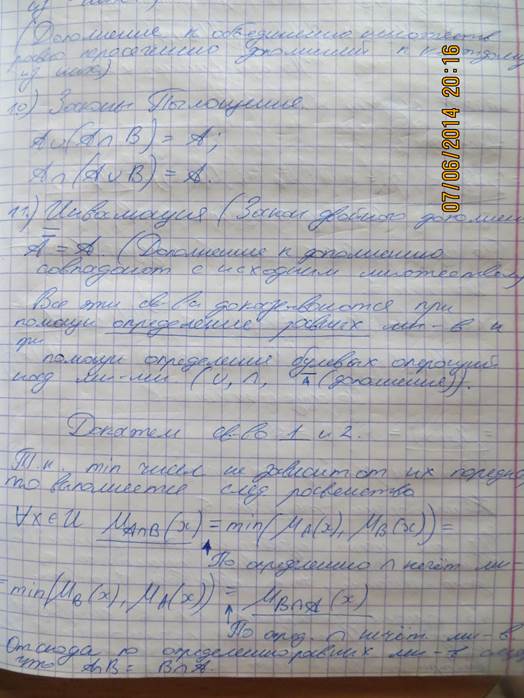 (Дополнение к объединению множеств
равно пересечению дополнений к каждому
из них)
10) Законы Поглощения.
A∪(A∩B) = A;
A∩(A∪B) = A.
11) Инвалюация (Закон двойного дополнен
A̿ = A (Дополнение к дополнению
совпадает с исходным множеством)
Все эти св-ва доказываются при
помощи определение равных мн-в и
при
помощи определений булевых операций
над мн-ми (∪, ∩, A̅ (дополнение)).
Докажем св-во 1 и 2.
Т.к. min чисел не зависит от их порядка
то выполняется след равенство
∀x∈U μA∩B(x) = min(μA(x), μB(x)) =
По определению ∩ нечёт мн-
= min(μB(x), μA(x)) = μB∩A(x)
По опр. ∩ нечёт. мн-в
Отсюда по определению равных мн-в след
что A∩B = B∩A.
07/06/2014 20:16